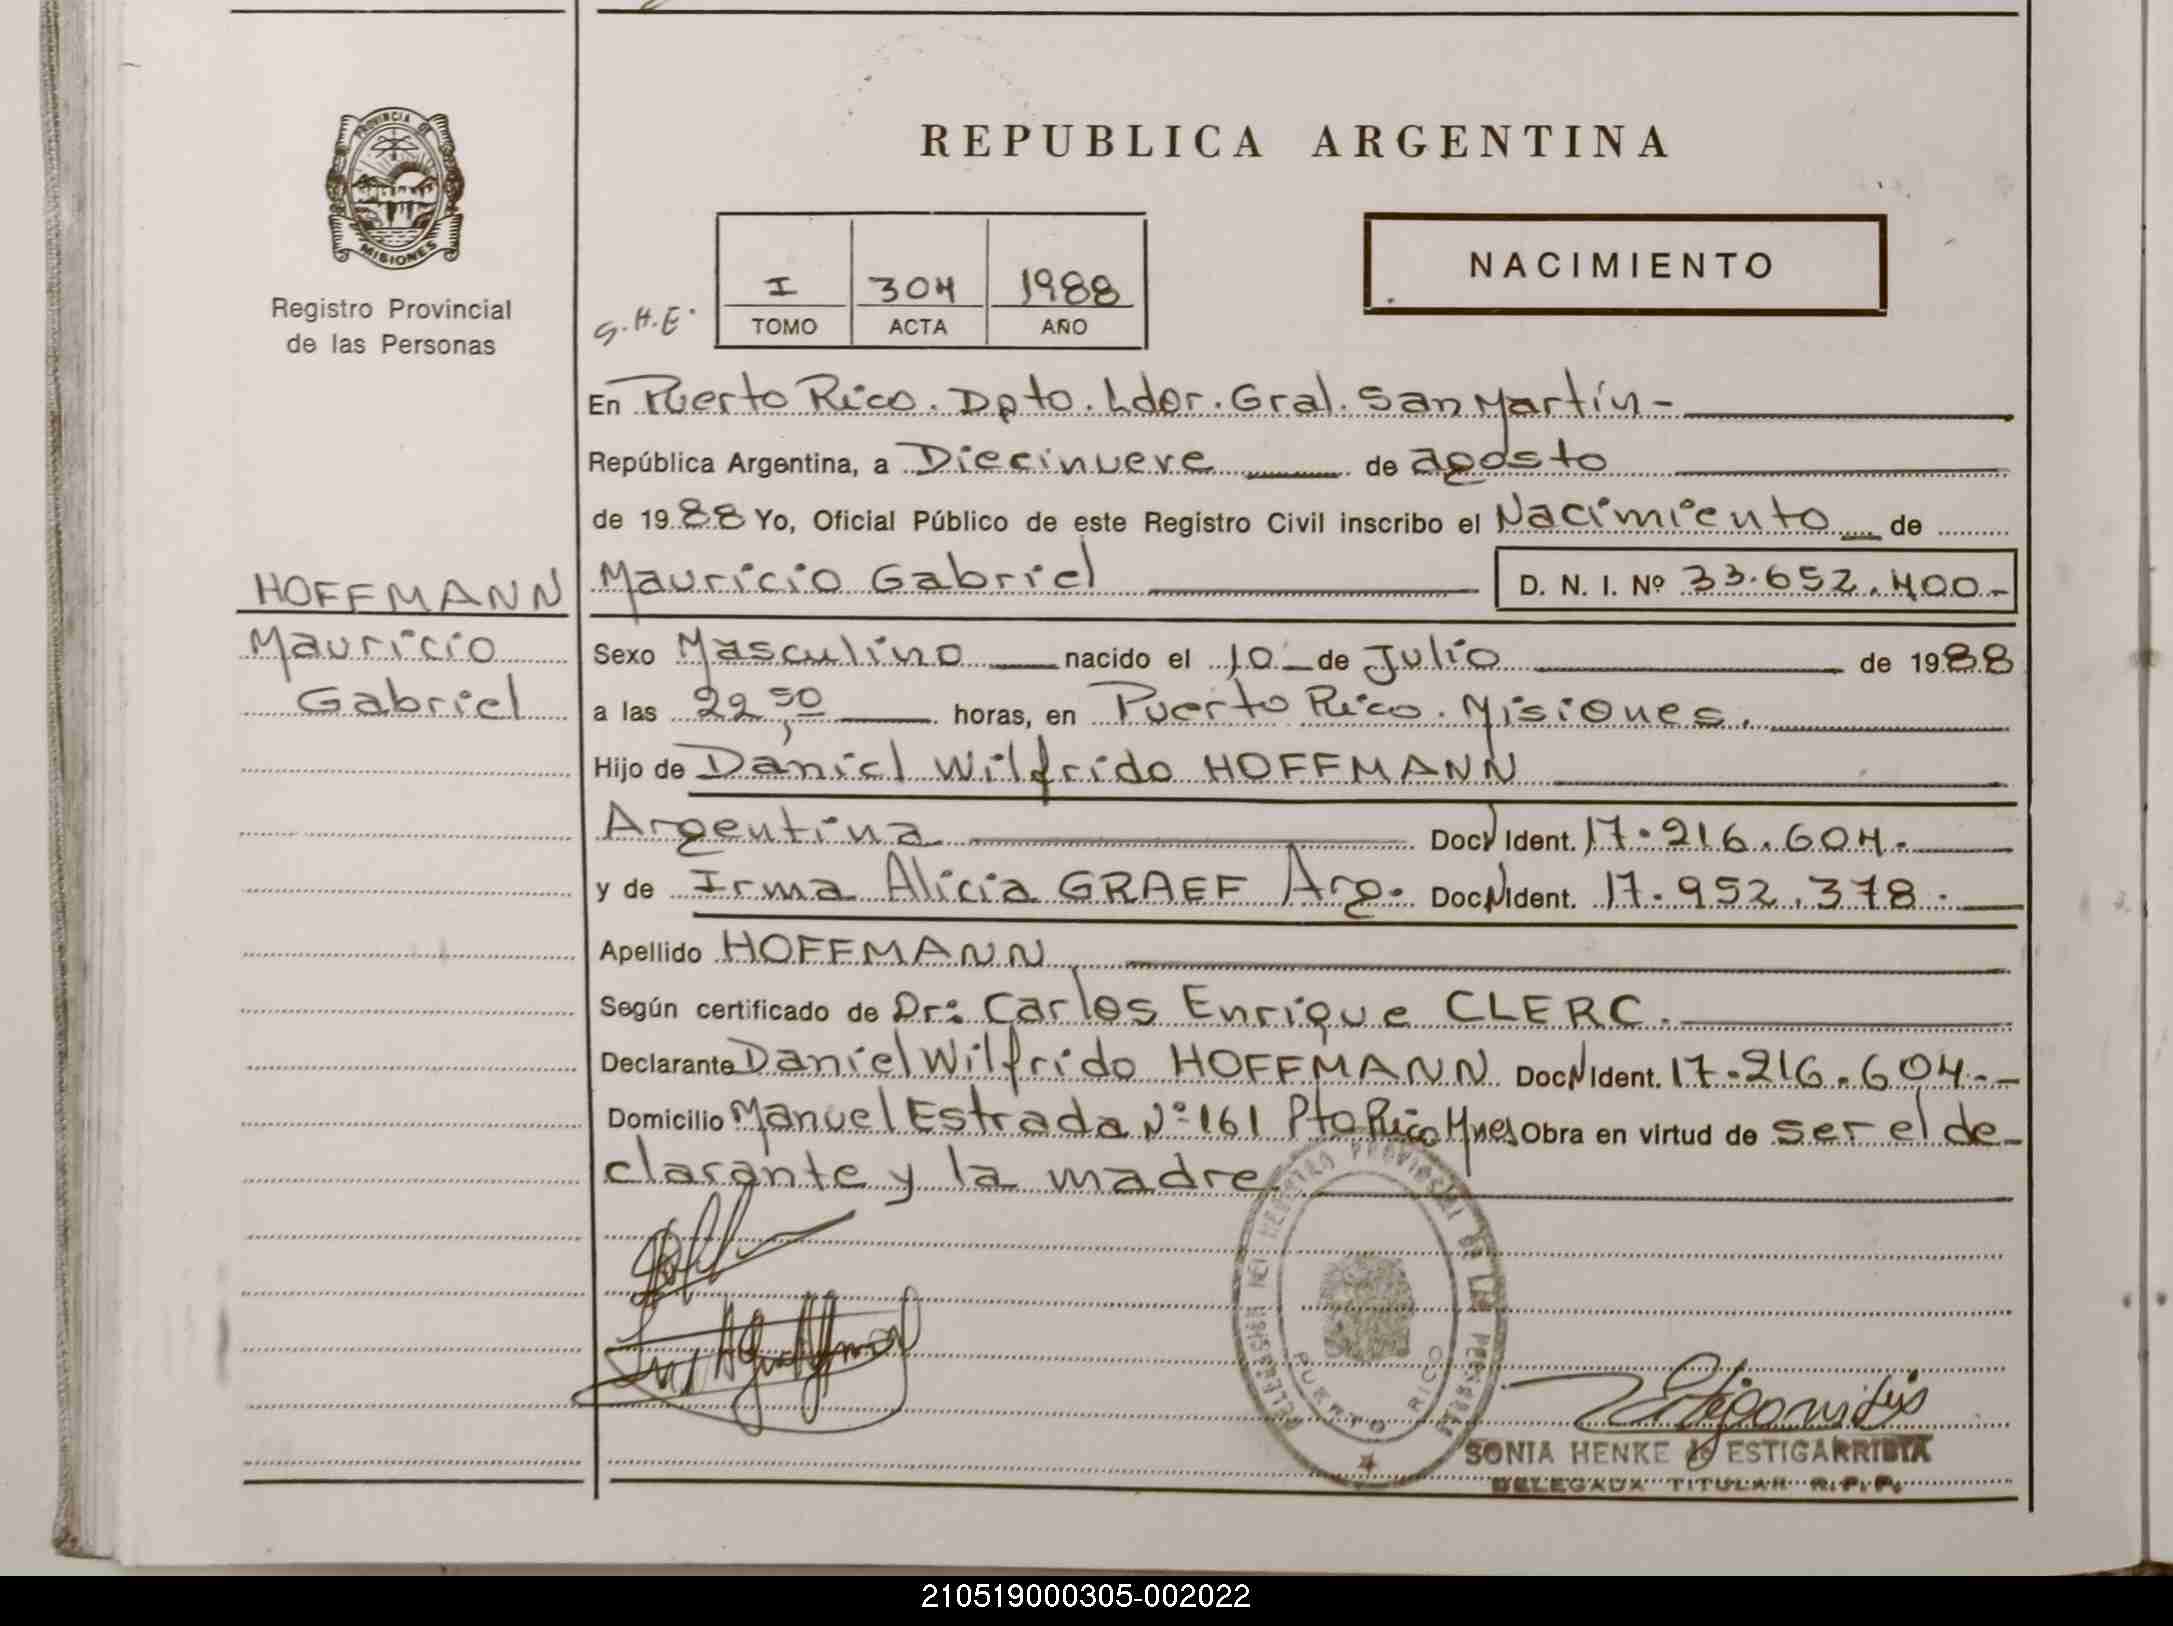 PROVINCIA DE
MISIONES
Registro Provincial
de las Personas
REPUBLICA ARGENTINA
I 304 1988
TOMO ACTA AÑO
G.H.E.
NACIMIENTO
En Puerto Rico. Dpto. Ldor. Gral. San Martín-
República Argentina, a Diecinueve de agosto
de 1988 Yo, Oficial Público de este Registro Civil inscribo el Nacimiento de
HOFFMANN
Mauricio
Gabriel
Mauricio Gabriel D. N. I. Nº 33.652.400-
Sexo Masculino nacido el 10 de Julio de 1988
a las 22,50 horas, en Puerto Rico. Misiones.
Hijo de Daniel Wilfrido HOFFMANN
Argentina Doc. Ident. 17.216.604.
y de Irma Alicia GRAEF Arg. Doc N Ident. 17.952.378.
Apellido HOFFMANN
Según certificado de Dr: Carlos Enrique CLERC.
Declarante Daniel Wilfrido HOFFMANN Doc N Ident. 17.216.604.-
Domicilio Manuel Estrada Nº 161 Pto Rico Mnes Obra en virtud de ser el de-
clarante y la madre.
DELEGACION DEL REGISTRO PROVINCIAL DE LAS PERSONAS
PUERTO RICO
SONIA HENKE de ESTIGARRIBIA
DELEGADA TITULAR R.P.P.
210519000305-002022